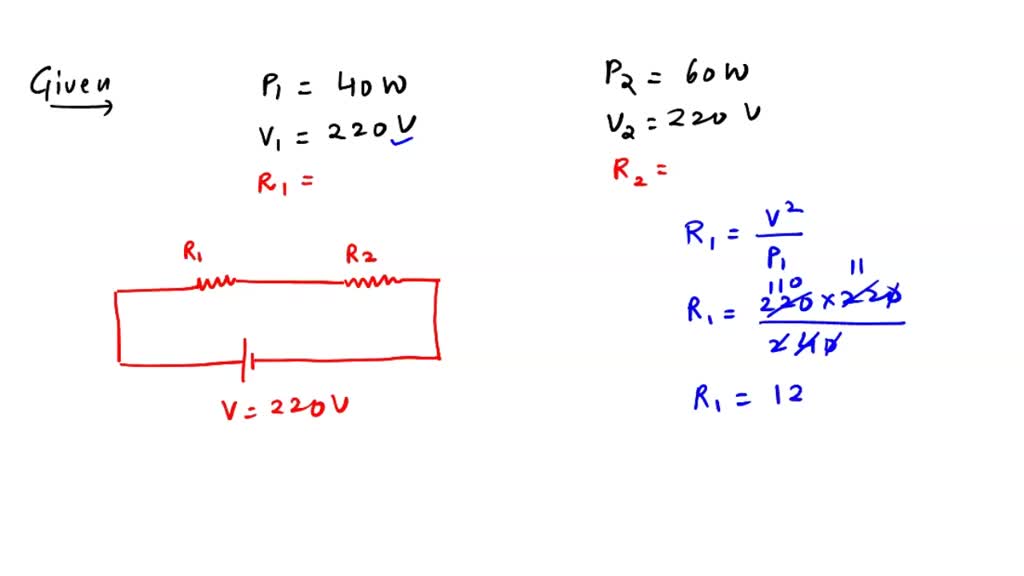 Given
P₁ = 40W
V₁ = 220V
R₁ =
P₂ = 60W
V₂ = 220 V
R₂ =
R₁ R₂
V = 220V
R₁ = V² / P₁
R₁ = 110 11
220 × 220 / 2 40
R₁ = 12